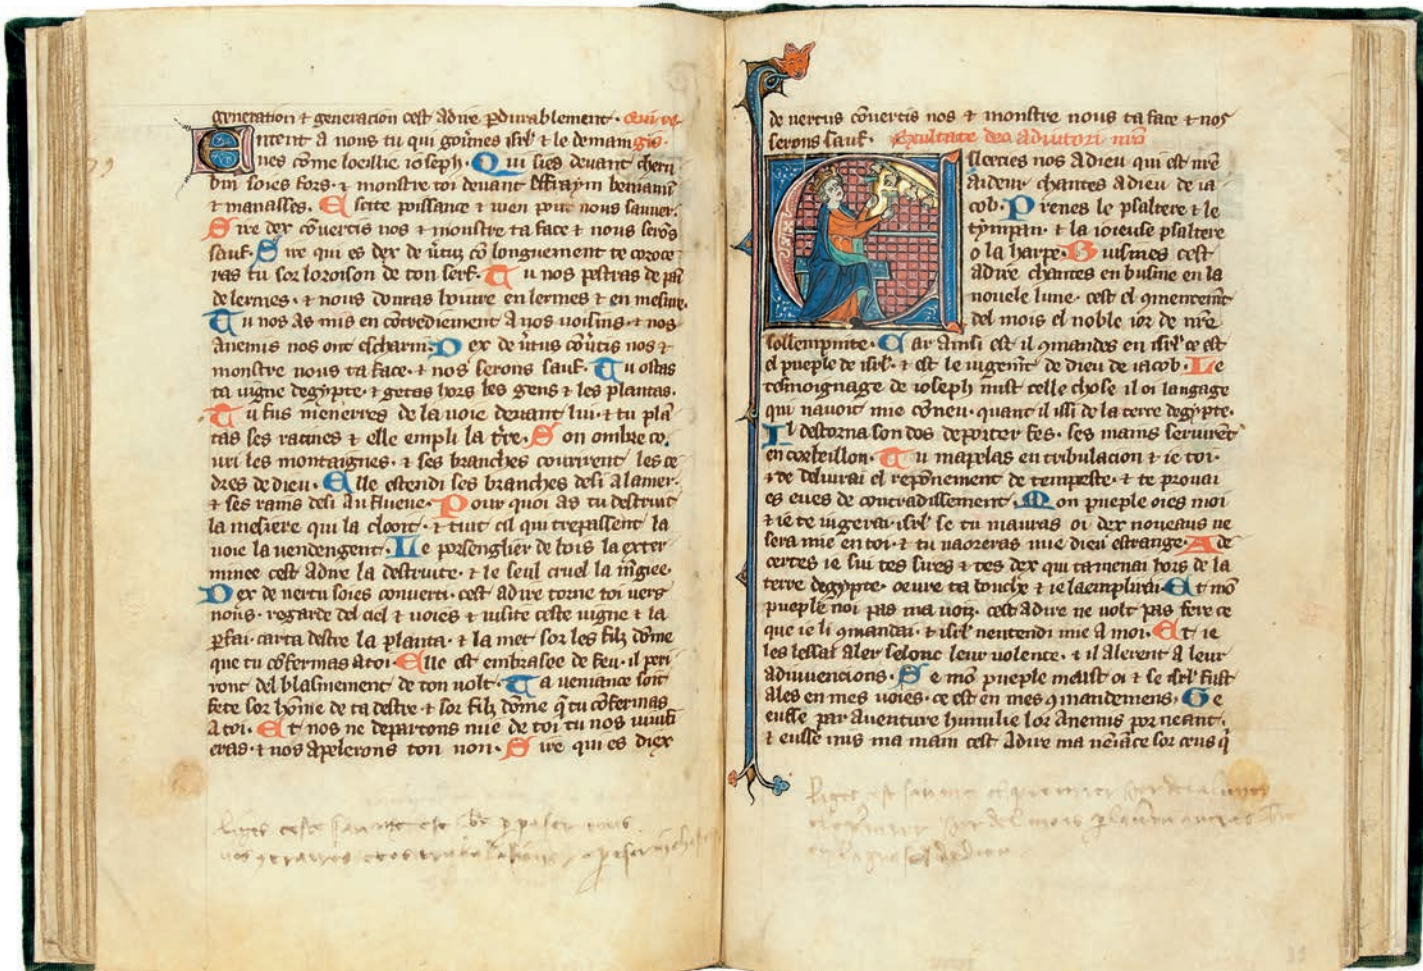 generation ⁊ generacion cest adire p̄durablement. Qui re
Entent a nous tu qui gou̾nes isrl̾ ⁊ le demain gis
nes cōme loeillie ioseph. Qui sies deuant cheru
bin soies fors. ⁊ monstre toi deuant effraym beniamī
⁊ manasses. Escite poissance ⁊ uien pour nous sauuer.
Sire dex cōuertis nos ⁊ mōstre ta face ⁊ nous serōs
sauf. Sire qui es dex de ūtuz cō longuement te coroce
ras tu sor loroison de ton serf. Tu nos pestras de pai
de lermes. ⁊ nous donras boiure en lermes ⁊ en mesure.
Tu nos as mis en cōtrediement a nos uoisins. ⁊ nos
anemis nos ont escharni. Dex de ūtus cōūtis nos ⁊
monstre nous ta face. ⁊ nos serons sauf. Tu ostas
ta uigne degypte. ⁊ getas hors les gens ⁊ les plantas.
Tu fus menerres de la uoie deuant lui. ⁊ tu plā
tas ses racines ⁊ elle empli la t̄re. Son ombre co.
uri les montaignes. ⁊ ses branches couurirent les ce
dres de dieu. Elle estendi ses branches desi a la mer.
⁊ ses rains desi au flueue. Pour quoi as tu destruit
la mesiere qui la clooit. ⁊ tuit cil qui trepassent la
uoie la uendengent. Le porsenglier de bois la exter
minee cest adire la destruite. ⁊ le seul cruel la māgiee.
Dex de uertu soies conuerti. cest adire torne toi uers
nous. regarde del ciel ⁊ uoies ⁊ uisite ceste uigne ⁊ la
p̄fai. car ta destre la planta. ⁊ la met sor les filz dōme
que tu cōfermas a toi. Elle est embrasee de feu. il peri
ront del blasmement de ton uolt. Ta ueniance soit
fete sor hōme de ta destre. ⁊ sor filz dōme q̄ tu cōfermas
a toi. Et nos ne departons mie de toi tu nos uiuifi
eras. ⁊ nos apelerons ton non. Sire qui es diex
de uertus cōuertis nos ⁊ monstre nous ta face ⁊ nos
serons sauf. Exultate deo adiutori nr̄o
Esleecies nos adieu qui est nr̄e
aideur chantes adieu de ia
cob. Prenes le psaltere ⁊ le
tympan. ⁊ la ioieuse psaltere
o la harpe. Buisines cest
adire chantes en buisine en la
nouele lune. cest el ꝯmencemt̄
del mois el noble ior de nr̄e
sollempnite. Car ainsi est il ꝯmandes en isrl̾ ce est
el pueple de isrl̾. ⁊ est le iugem̄t de dieu de iacob. Le
tesmoignage de ioseph mist celle chose il oi langage
qui nauoit mie cōneu. quant il issi de la terre degypte.
Il destorna son dos de porter fes. ses mains seruirēt
en corbeillon. Tu mapelas en tribulacion ⁊ ie toi.
⁊ de deliurai el reponement de tempeste. ⁊ te prouai
es eues de contradissement. Mon pueple oies moi
⁊ ie te iugerai. isrl̾ se tu mauras oi dex noueaus ne
sera mie en toi. ⁊ tu naoreras mie dieu estrange. Ade
certes ie sui tes sires ⁊ tes dex qui tamenai hors de la
terre degypte. oeuure ta bouche ⁊ ie laemplirai. Et mō
pueple noi pas ma uoiz. cest adire ne uolt pas fere ce
que ie li ꝯmandai. ⁊ isrl̾ nentendi mie a moi. Et ie
les lessai aler selonc leur uolente. ⁊ il alerent a leur
adinuencions. Se mō pueple meust oi ⁊ se isrl̾ fust
ales en mes uoies. ce est en mes ꝯmandemens. Ge
eusse par auenture humilie lor anemis por neant.
⁊ eusse mis ma main cest adire ma ueniāce sor ceus q̄